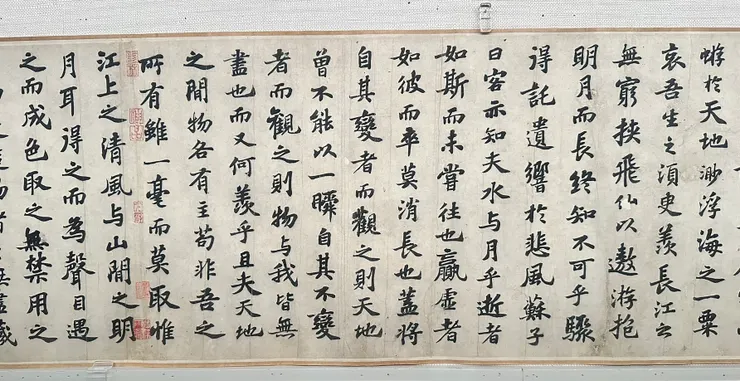 蝣於天地渺浮海之一粟
哀吾生之須臾羨長江之
無窮挾飛仙以遨游抱
明月而長終知不可乎驟
得託遺響於悲風蘇子
曰客亦知夫水与月乎逝者
如斯而未嘗往也贏虛者
如彼而卒莫消長也蓋將
自其變者而觀之則天地
曾不能以一瞬自其不變
者而觀之則物与我皆無
盡也而又何羨乎且夫天地
之間物各有主苟非吾之
所有雖一毫而莫取惟
江上之清風与山間之明
月耳得之而為聲目遇
之而成色取之無禁用之